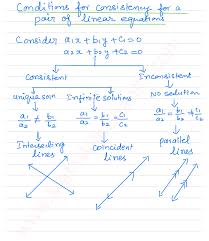 Conditions for consistency for a
pair of linear equations
Consider a₁x + b₁y + c₁ = 0
a₂x + b₂y + c₂ = 0
Consistent Inconsistent
unique soln Infinite solutions No solution
a₁/a₂ ≠ b₁/b₂ a₁/a₂ = b₁/b₂ = c₁/c₂ a₁/a₂ = b₁/b₂ ≠ c₁/c₂
Intersecting lines Coincident lines parallel lines